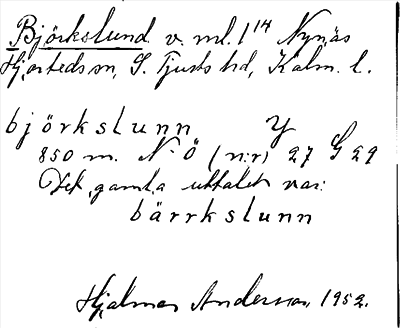 Björkslund v. ml. 1¹⁴ Nynäs
Hjorteds sn, S. Tjusts hd, Kalm. l.
björkslunn Y
850 m. N-Ö (n:r) 27 G 29
Det gamla uttalet var:
bärrkslunn
Hjalmar Andersson, 1952.